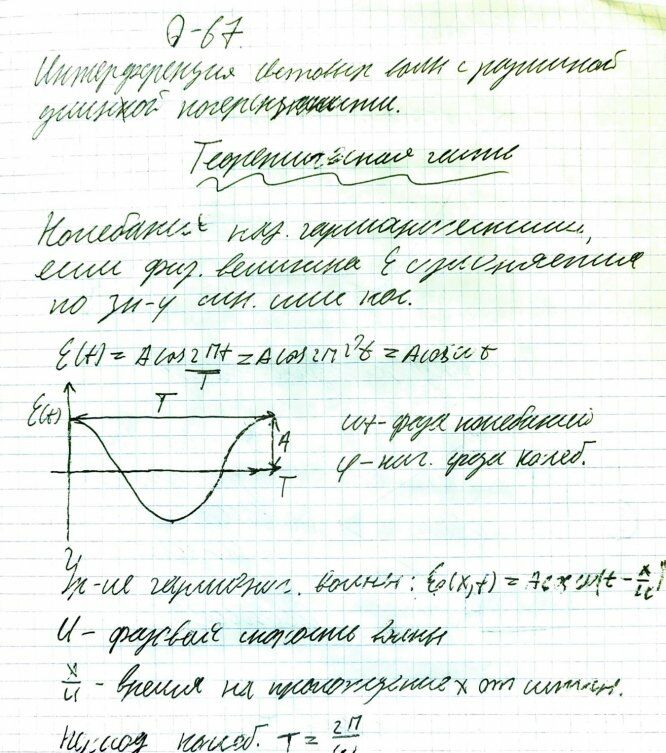 О-67.
Интерференция световых волн с различной
длиной когерентности.
Теоретическая часть
Колебания наз. гармоническими,
если физ. величина ξ изменяется
по зн-у син. или кос.
ξ(t) = A cos 2πt/T = A cos 2πνt = A cos ωt
ξ(t) T A T
ωt - фаза колебаний
φ - нач. фаза колеб.
Ур-ие гармонич. волны: ξ(x,t) = A cos ω(t - x/u)
U - фазовая скорость волны
x/u - время на прохождение x от источн.
Период колеб. T = 2π/ω